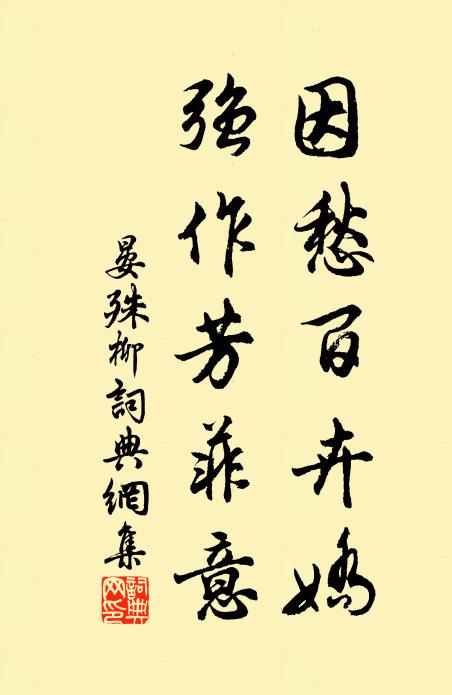 因愁百卉嬌
強作芳菲意
晏殊柳詞典網集
詞典網印